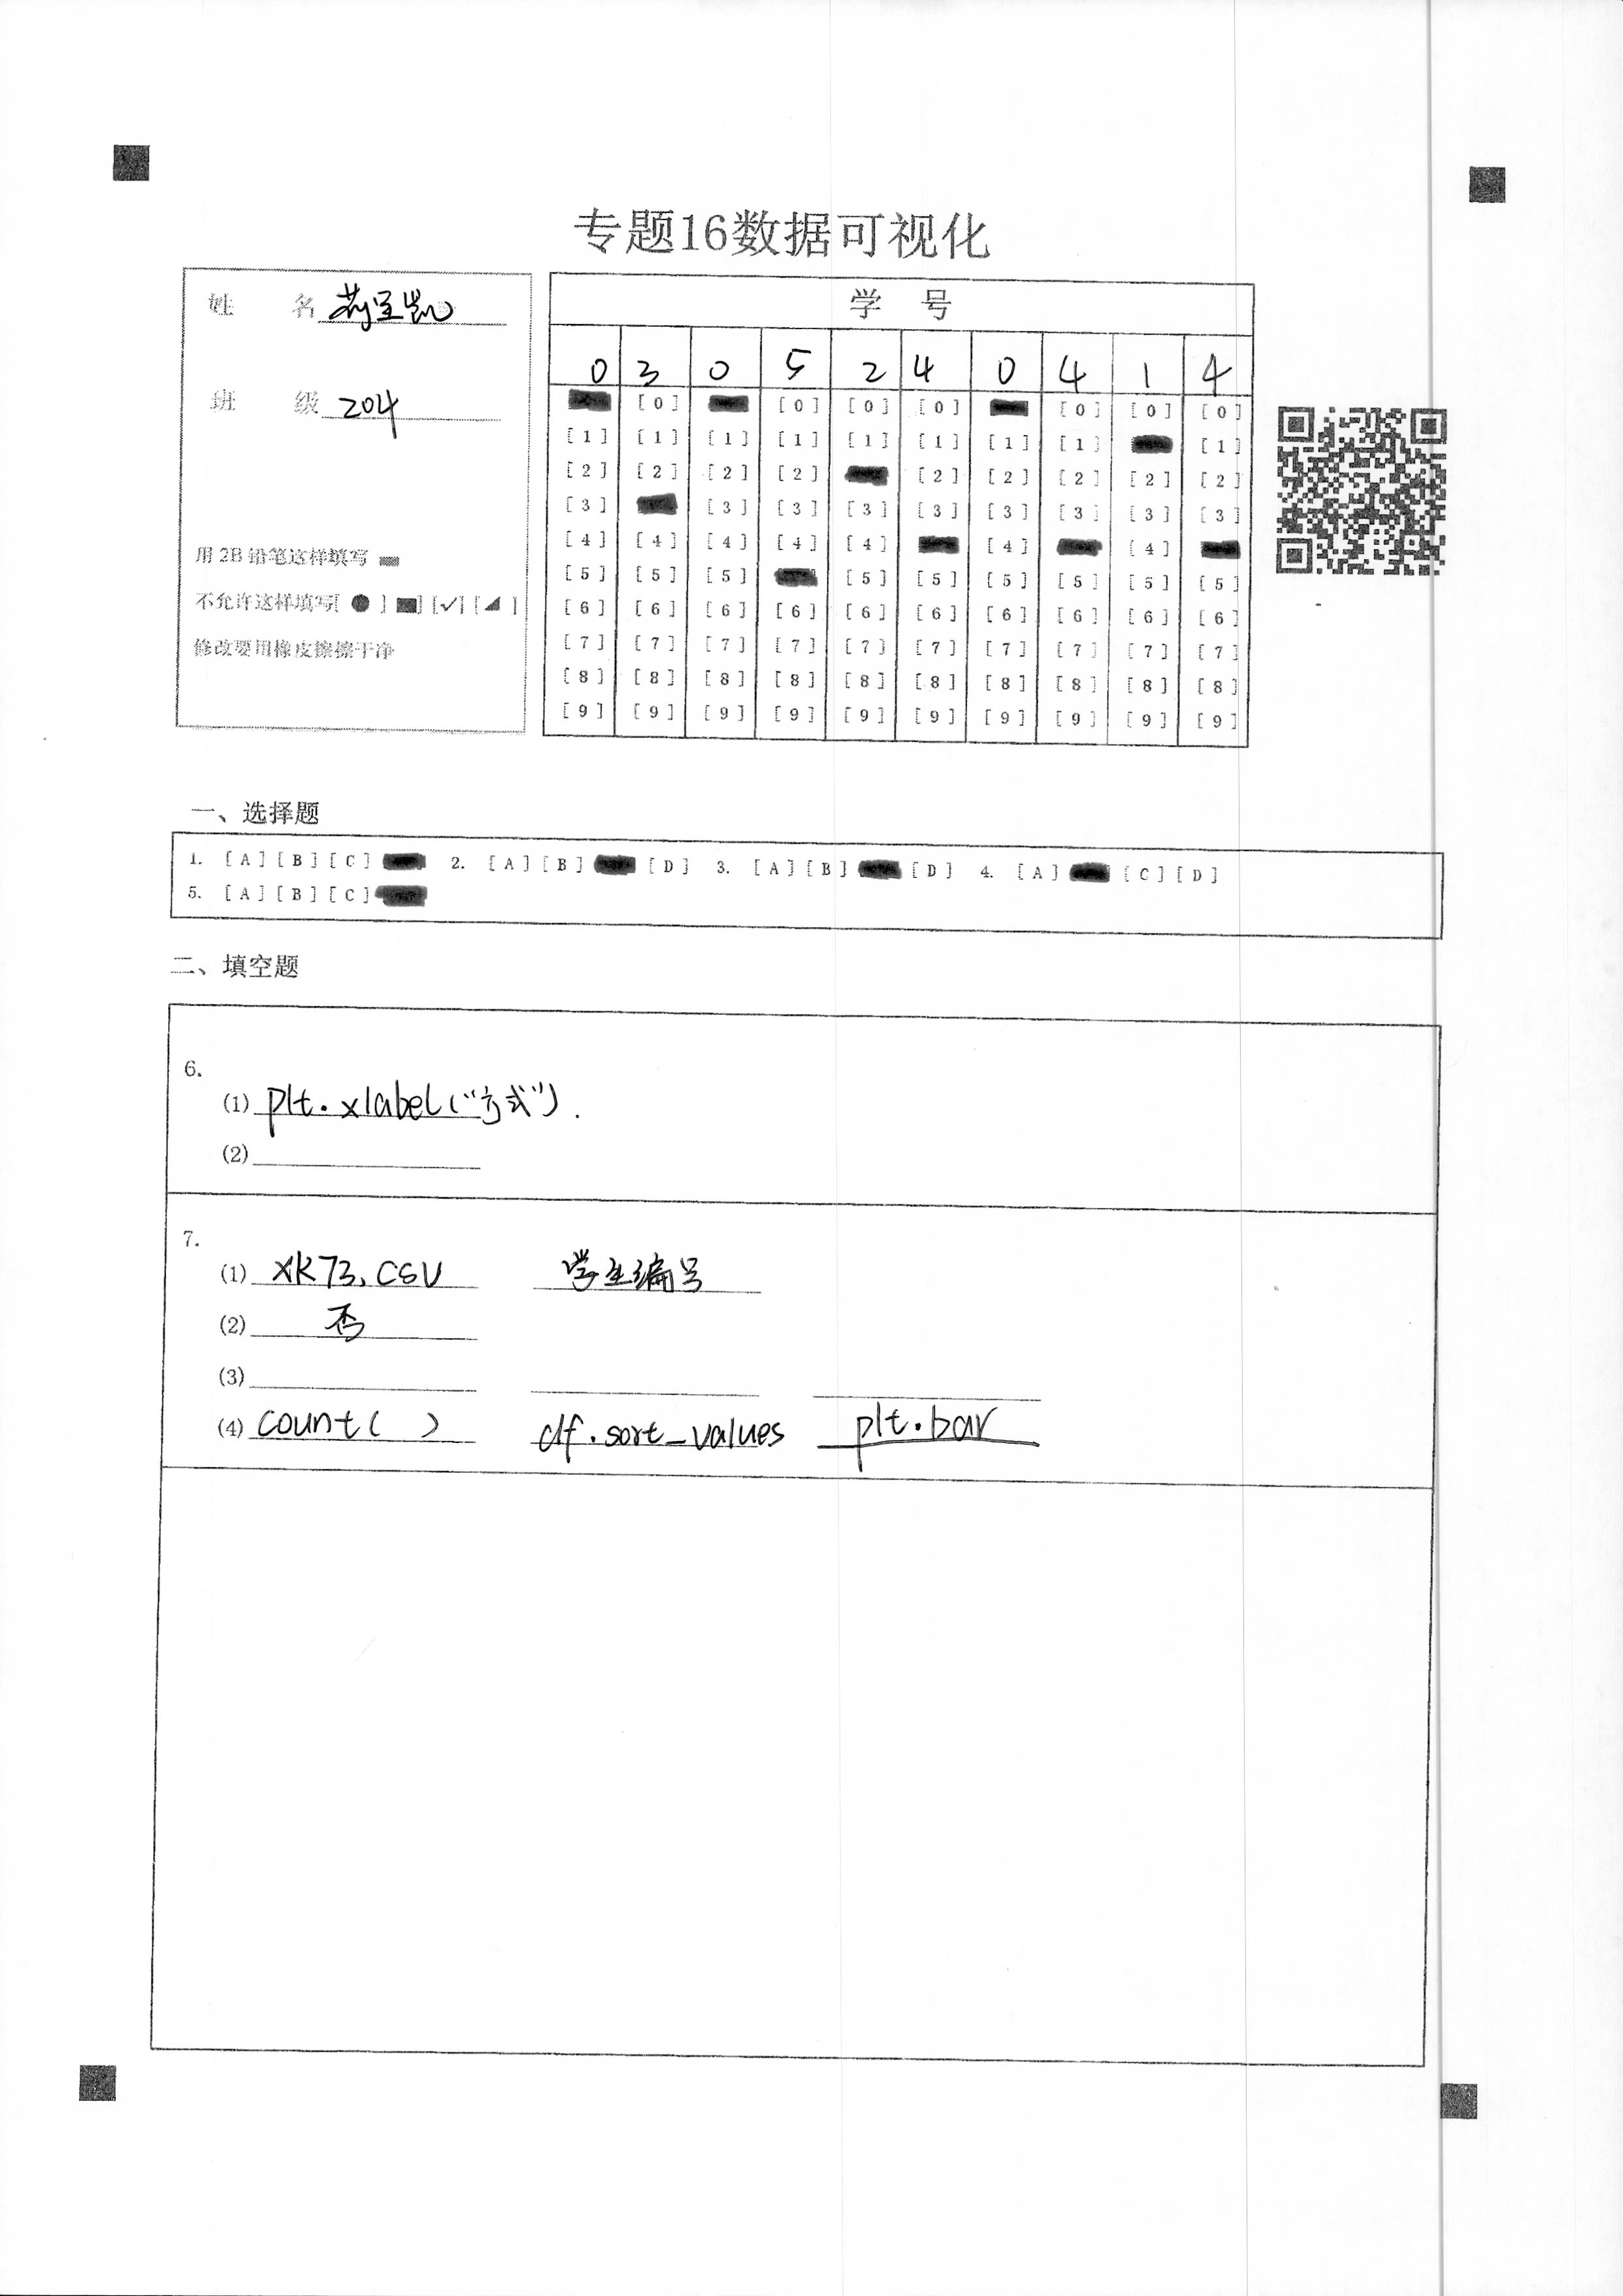 专题16数据可视化
姓 名
班 级 204
用 2B 铅笔这样填写
不允许这样填写[ ● ] ■] [✓] [◢ ]
修改要用橡皮擦擦干净
学 号
0 3 0 5 2 4 0 4 1 4
[0] [0] [0] [0] [0] [0] [0]
[1] [1] [1] [1] [1] [1] [1] [1] [1]
[2] [2] [2] [2] [2] [2] [2] [2] [2]
[3] [3] [3] [3] [3] [3] [3] [3] [3]
[4] [4] [4] [4] [4] [4] [4]
[5] [5] [5] [5] [5] [5] [5] [5] [5]
[6] [6] [6] [6] [6] [6] [6] [6] [6] [6]
[7] [7] [7] [7] [7] [7] [7] [7] [7] [7]
[8] [8] [8] [8] [8] [8] [8] [8] [8] [8]
[9] [9] [9] [9] [9] [9] [9] [9] [9] [9]
一、选择题
1. [A] [B] [C] 2. [A] [B] [D] 3. [A] [B] [D] 4. [A] [C] [D]
5. [A] [B] [C]
二、填空题
6.
(1) plt.xlabel("方式").
(2)
7.
(1) xk73.csv 学生编号
(2) 否
(3)
(4) count( ) df.sort_values plt.bar